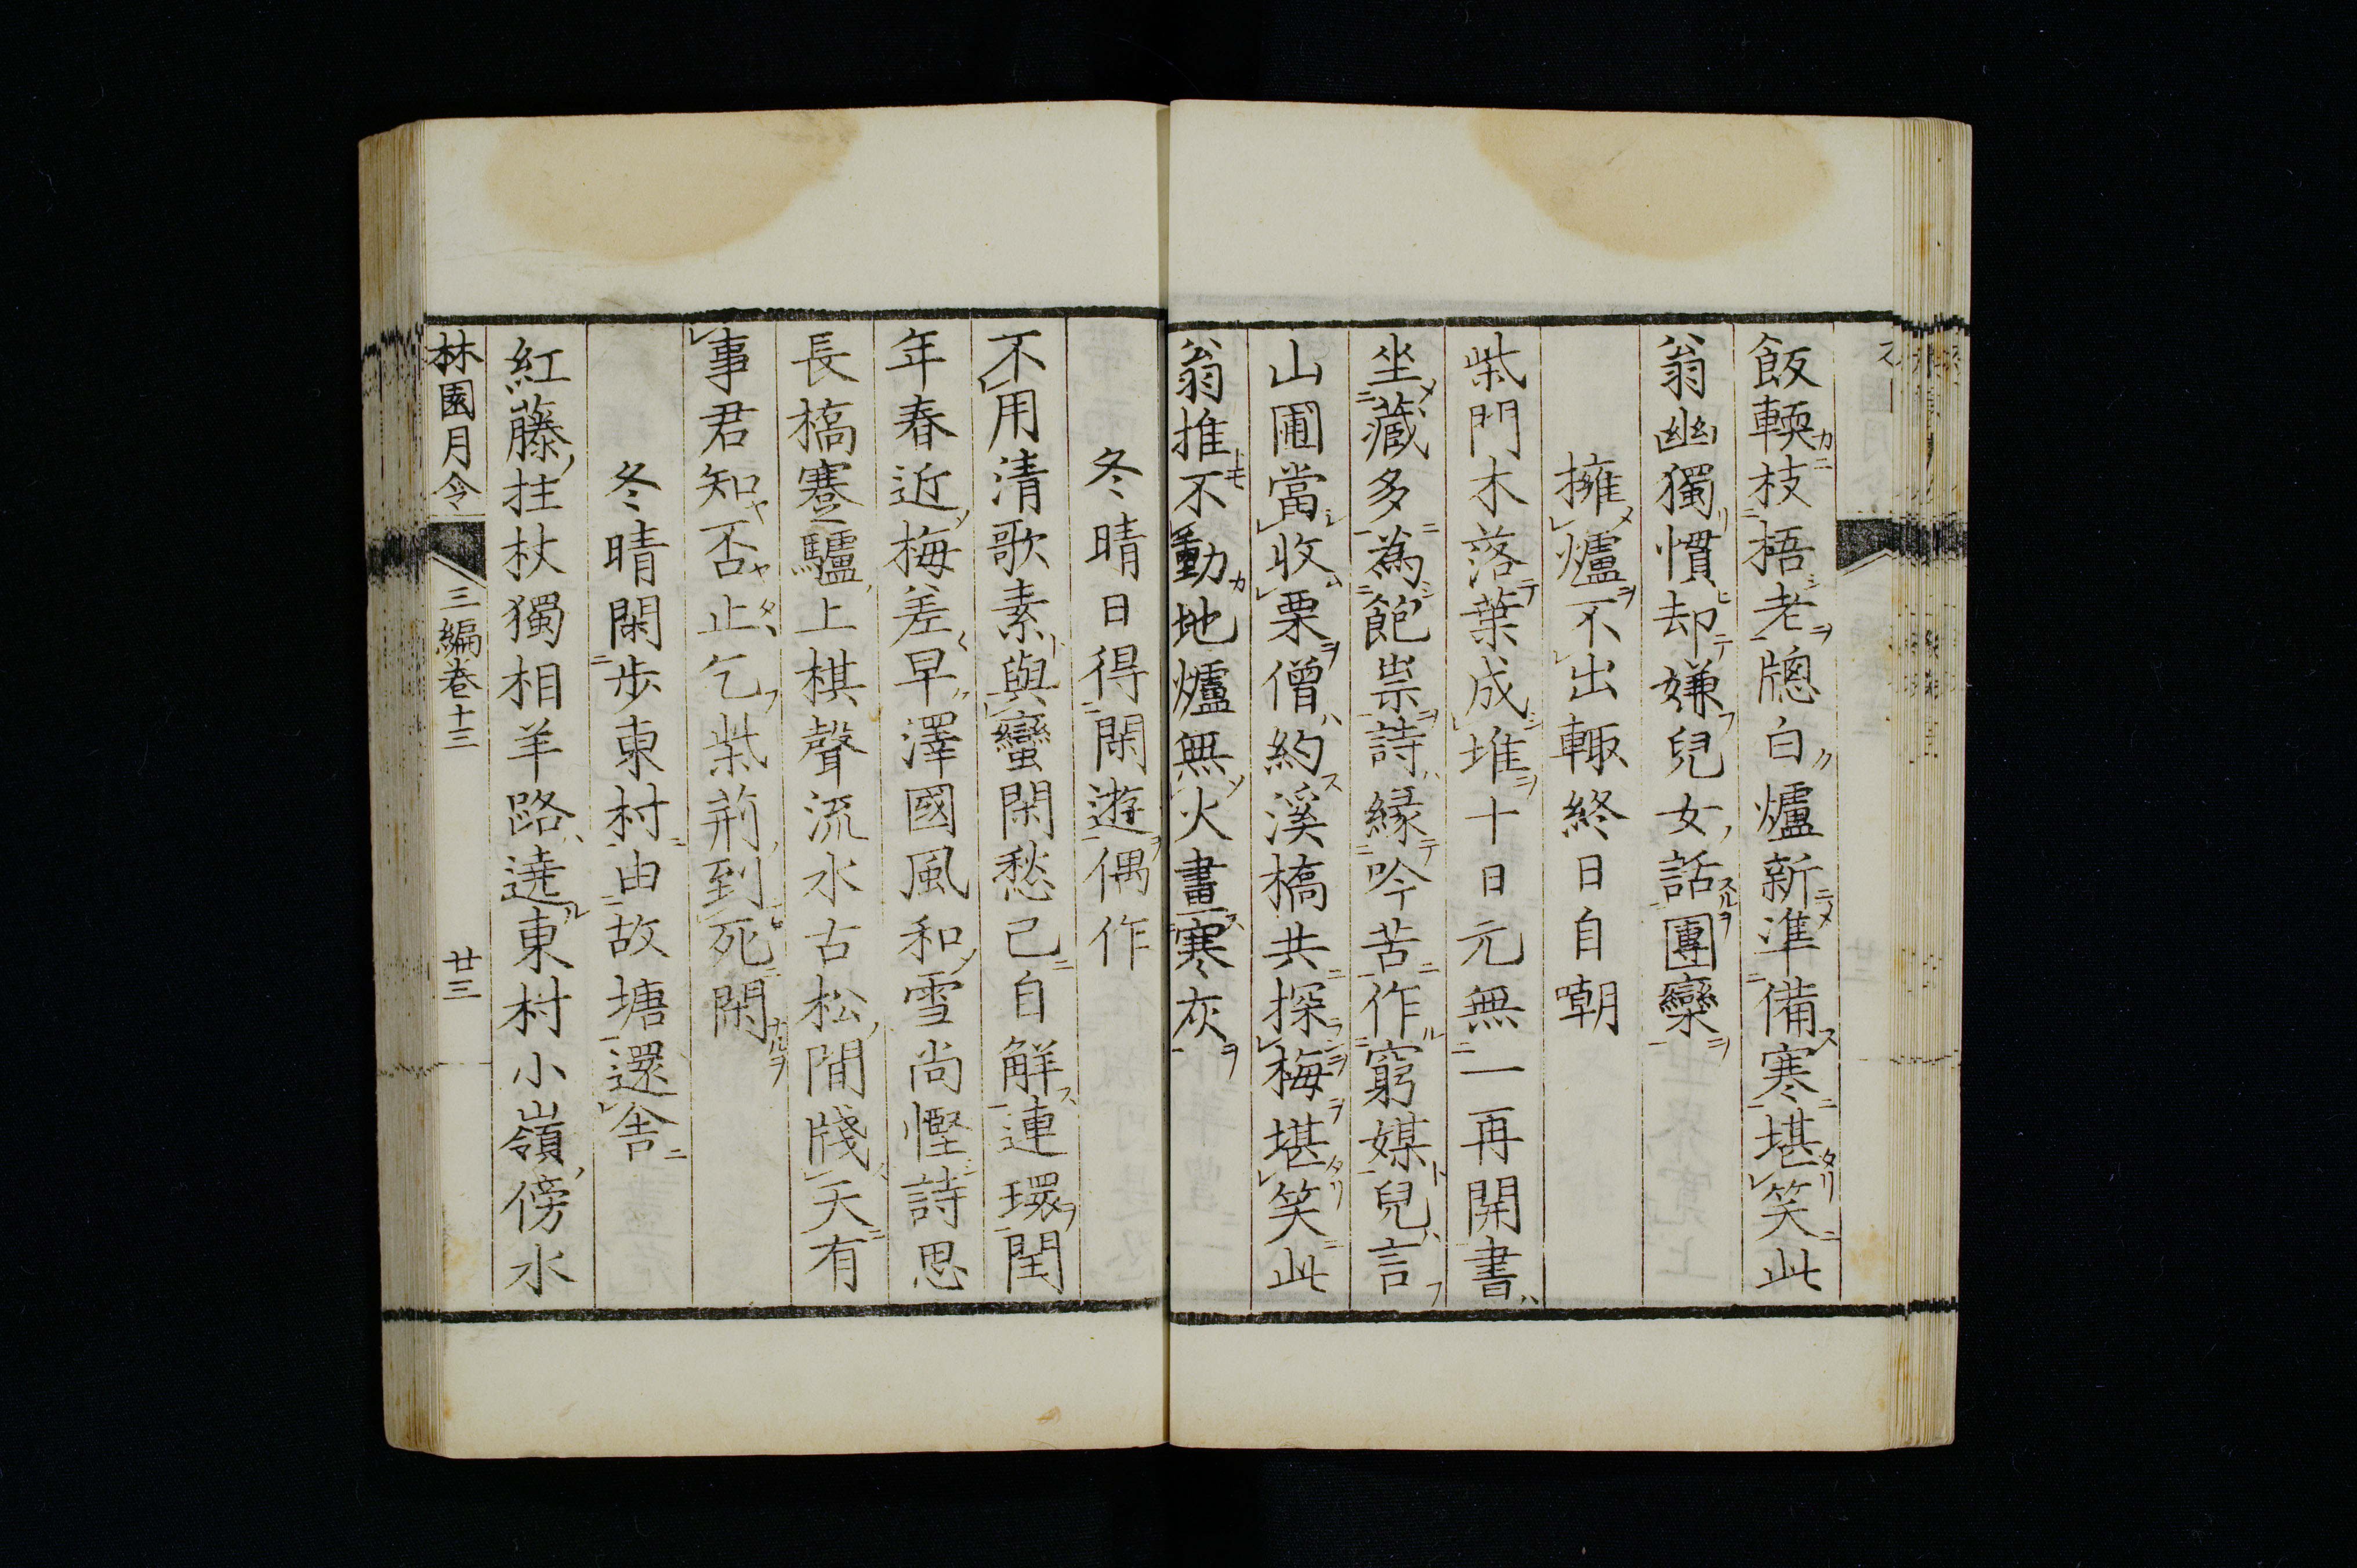 飯輭枝梧老牕白爐新準備寒堪笑此
翁幽獨慣却嫌兒女話團欒
擁爐不出輙終日自嘲
柴門木落葉成堆十日元無一再開書
坐藏多為飽祟詩緣吟苦作窮媒兒言
山圃當收栗僧約溪橋共探梅堪笑此
翁推不動地爐無火畫寒灰
冬晴日得閑遊偶作
不用清歌素與蠻閑愁已自解連環閏
年春近梅差早澤國風和雪尚慳詩思
長橋蹇驢上棋聲流水古松間牋天有
事君知否止乞柴荊到死閑
冬晴閑步東村由故塘還舍
紅藤拄杖獨相羊路遶東村小嶺傍水
林園月令
三編卷十三
廿三